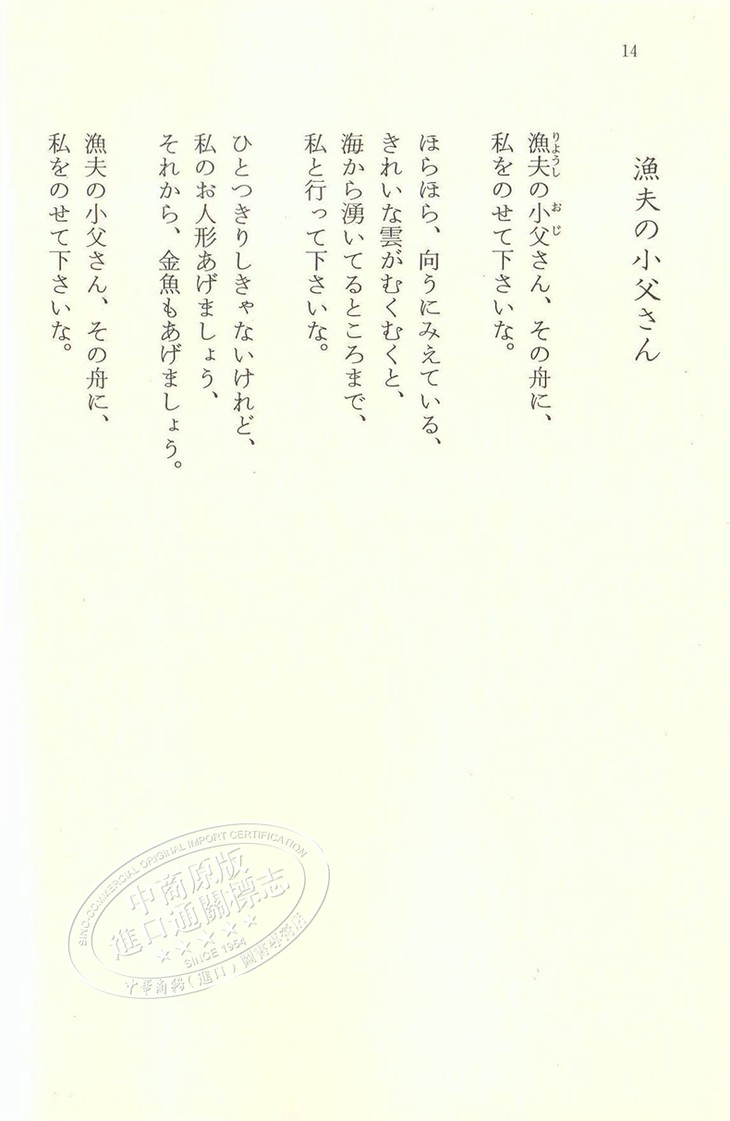 14
漁夫の小父さん
漁夫の小父さん、その舟に、
りょうし
おじ
私をのせて下さいな。
ほらほら、向うにみえている、
きれいな雲がむくむくと、
海から湧いてるところまで、
私と行って下さいな。
ひとつきりしきゃないけれど、
私のお人形あげましょう、
それから、金魚もあげましょう。
漁夫の小父さん、その舟に、
私をのせて下さいな。
SINO-COMMERCIAL ORIGINAL IMPORT CERTIFICATION
中商原版
進口通關標志
SINCE 1954
中華商務(進口)圖書專營店